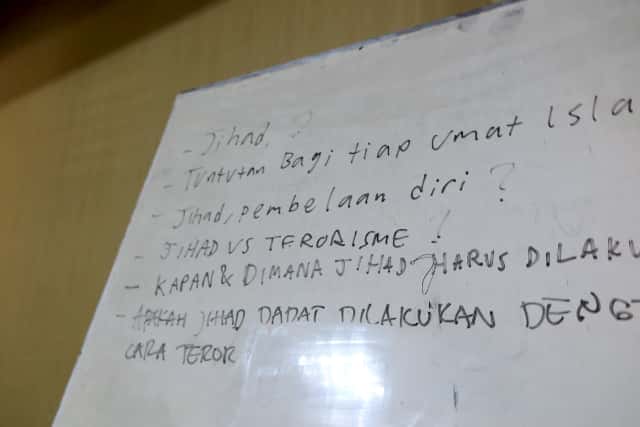 - Jihad, ?
- Tuntutan Bagi tiap umat Isla
- Jihad, pembelaan diri ?
- JIHAD VS TERORISME ?
- KAPAN & DIMANA JIHAD HARUS DILAKU
- APAKAH JIHAD DAPAT DILAKUKAN DENG
CARA TEROR